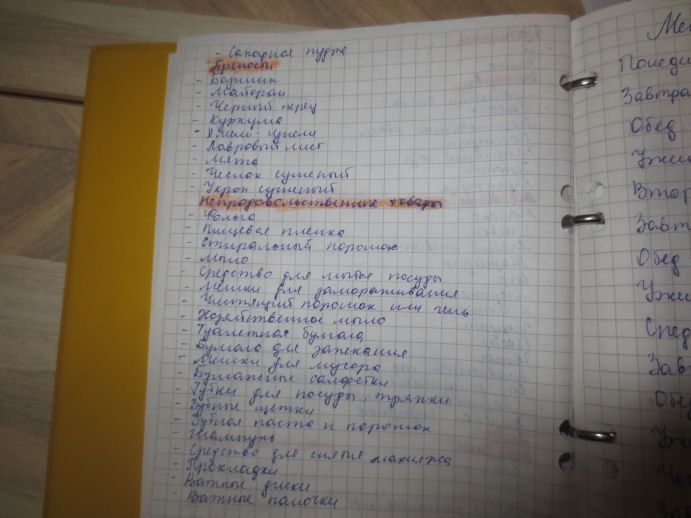 - Сахарная пудра
Пряности
- Базилик
- Майоран
- Черный перец
- Куркума
- Хмели-сунели
- Лавровый лист
- Мята
- Чеснок сушеный
- Укроп сушеный
Непродовольственные товары
- Фольга
- Пищевая пленка
- Стиральный порошок
- Мыло
- Средство для мытья посуды
- Мешки для замораживания
- Чистящий порошок или гель
- Хозяйственное мыло
- Туалетная бумага
- Бумага для запекания
- Мешки для мусора
- Бумажные салфетки
- Губки для посуды, тряпки
- Зубные щетки
- Зубная паста и порошок
- Шампунь
- Средство для снятия макияжа
- Прокладки
- Ватные диски
- Ватные палочки
Завтра
Обед
Завт
Обед